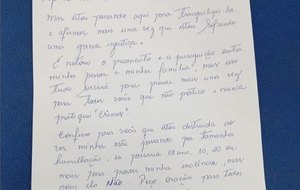 Mas estou passando aqui para tranquiliza-la
e afirmar mais uma vez que estou sofrendo
uma grande injustiça.
É notório o preconceito e a perseguição contra
minha pessoa e minha família, mas isso
tudo servirá para provar mais uma vez
para todos vocês que não pratico e nunca
pratiquei "crimes".
Confesso para vocês que estou destruída ao
ver minha mãe passando por tamanha
humilhação, eu passaria 01 ano, 10, 20 ou
mais para provar minha inocência, mas
com ela Não! Peço orações para todos